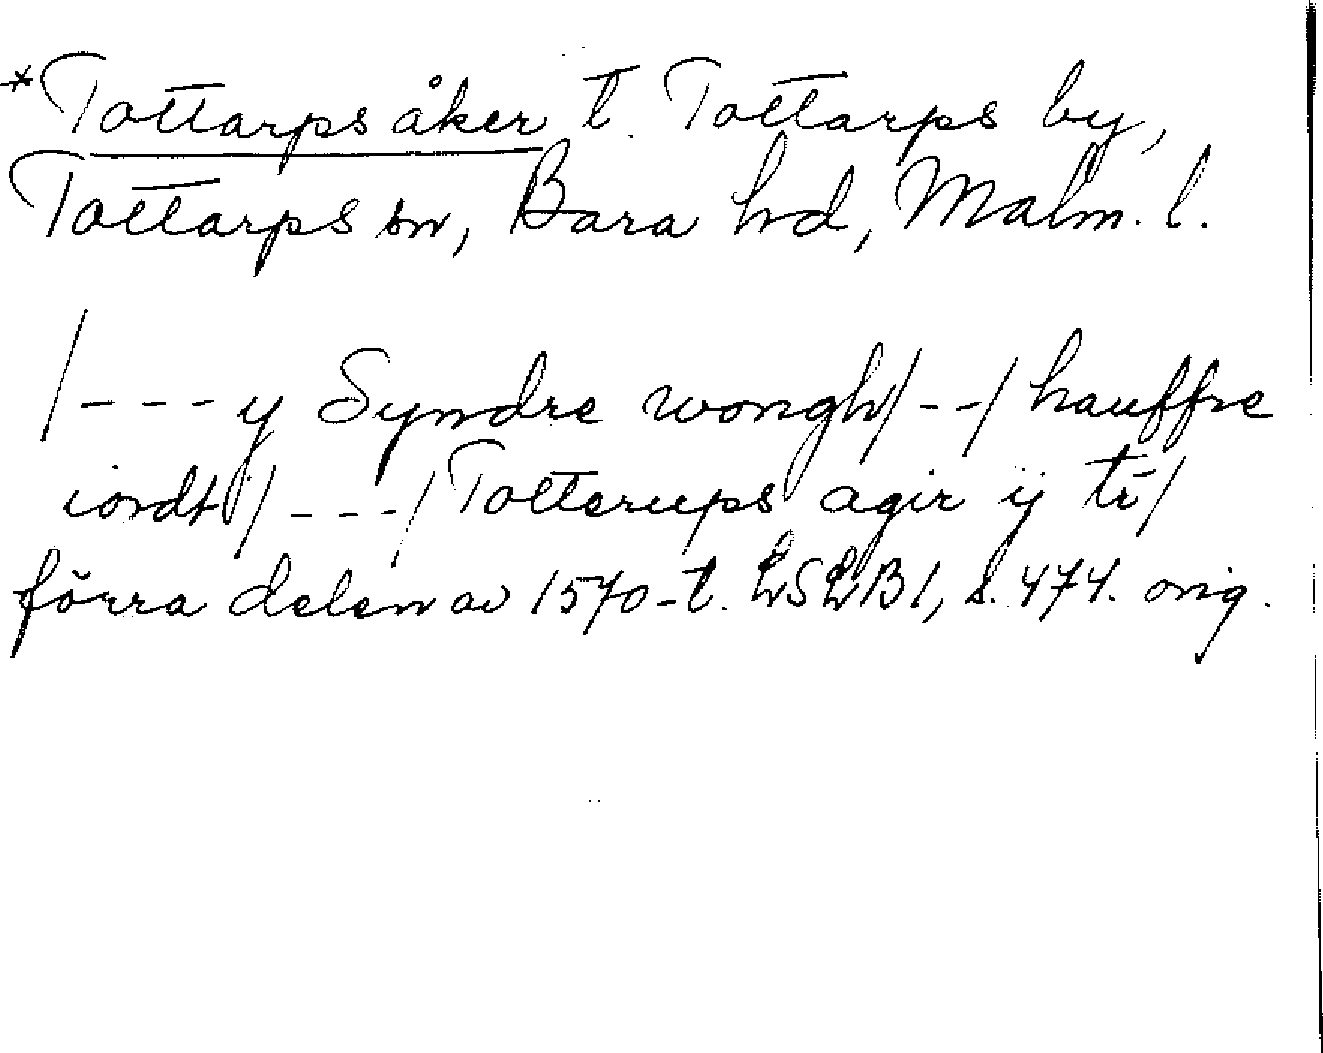 *Tottarps åker t. Tottarps by,
Tottarps sn, Bara hd, Malm. l.
/---y Syndre wongh/--/hauffre
iordt/---/Totterups agir ij tr/
förra delen av 1570-t. LSLB1, s. 474. orig.